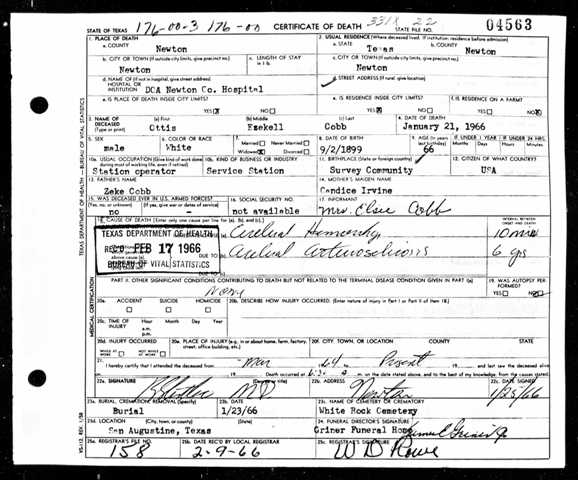 STATE OF TEXAS 176-00-3 176-00 CERTIFICATE OF DEATH 331X 22 STATE FILE NO. 04563
1. PLACE OF DEATH
a. COUNTY
Newton
2. USUAL RESIDENCE (Where deceased lived. If institution: residence before admission)
a. STATE Texas b. COUNTY Newton
b. CITY OR TOWN (If outside city limits, give precinct no.)
Newton
c. LENGTH OF STAY
c. CITY OR TOWN (If outside city limits, give precinct no.)
Newton
d. NAME OF (If not in hospital, give street address)
HOSPITAL OR
INSTITUTION DOA Newton Co. Hospital
d. STREET ADDRESS (If rural, give location)
e. IS PLACE OF DEATH INSIDE CITY LIMITS?
YES NO
e. IS RESIDENCE INSIDE CITY LIMITS?
YES NO
f. IS RESIDENCE ON A FARM?
YES NO
3. NAME OF
DECEASED
(Type or print)
(a) First Ottis
(b) Middle Esekell
(c) Last Cobb
4. DATE OF DEATH
January 21, 1966
5. SEX
male
6. COLOR OR RACE
White
7. Married Never Married
Widowed Divorced
8. DATE OF BIRTH
9/2/1899
9. AGE (In years last birthday)
66
IF UNDER 1 YEAR
Months Days
IF UNDER 24 HRS.
Hours Min.
10a. USUAL OCCUPATION (Give kind of work done during most of working life, even if retired)
Station operator
10b. KIND OF BUSINESS OR INDUSTRY
Service Station
11. BIRTHPLACE (State or foreign country)
Survey Community
12. CITIZEN OF WHAT COUNTRY?
USA
13. FATHER'S NAME
Zeke Cobb
14. MOTHER'S MAIDEN NAME
Candice Irvine
15. WAS DECEASED EVER IN U.S. ARMED FORCES?
(Yes, no, or unknown) (If yes, give war or dates of service)
no -
16. SOCIAL SECURITY NO.
not available
17. INFORMANT
Mrs. Elsie Cobb
18. CAUSE OF DEATH [Enter only one cause per line for (a), (b), and (c).]
INTERVAL BETWEEN ONSET AND DEATH
10 min
6 yrs
TEXAS DEPARTMENT OF HEALTH
REC'D FEB 17 1966
BUREAU OF VITAL STATISTICS
DUE TO
DUE TO
PART II. OTHER SIGNIFICANT CONDITIONS CONTRIBUTING TO DEATH BUT NOT RELATED TO THE TERMINAL DISEASE CONDITION GIVEN IN PART I(a)
None
19. WAS AUTOPSY PERFORMED?
YES NO
20a. ACCIDENT SUICIDE HOMICIDE
20b. DESCRIBE HOW INJURY OCCURRED. (Enter nature of injury in Part I or Part II of Item 18.)
20c. TIME OF INJURY
Hour Month Day Year
a.m.
p.m.
20d. INJURY OCCURRED
WHILE AT WORK NOT WHILE AT WORK
20e. PLACE OF INJURY (e.g., in or about home, farm, factory, street, office building, etc.)
20f. CITY, TOWN, OR LOCATION COUNTY STATE
21. I hereby certify that I attended the deceased from Mar 19 64 to Present 19 and last saw the deceased alive
on 19 Death occurred at m. on the date stated above, and to the best of my knowledge, from the causes stated.
22a. SIGNATURE (Degree or title)
MD
22b. ADDRESS
Newton
22c. DATE SIGNED
1/25/66
23a. BURIAL, CREMATION, REMOVAL (Specify)
Burial
23b. DATE
1/23/66
23c. NAME OF CEMETERY OR CREMATORY
White Rock Cemetery
23d. LOCATION (City, town, or county) (State)
San Augustine, Texas
24. FUNERAL DIRECTOR'S SIGNATURE
Griner Funeral Home
25a. REGISTRAR'S FILE NO.
158
25b. DATE REC'D BY LOCAL REGISTRAR
2-9-66
25c. REGISTRAR'S SIGNATURE
W D Rowe
TEXAS DEPARTMENT OF HEALTH — BUREAU OF VITAL STATISTICS
MEDICAL CERTIFICATION
VS-112, REV. 1/58